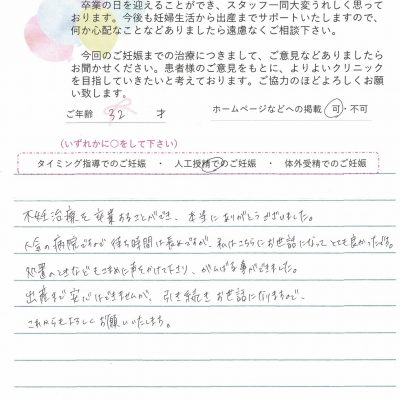 卒業の日を迎えることができ、スタッフ一同大変うれしく思って
おります。今後も妊婦生活から出産までサポートいたしますので、
何か心配なことなどありましたら遠慮なくご相談下さい。
今回のご妊娠までの治療につきまして、ご意見などありましたら
お聞かせください。患者様のご意見をもとに、よりよいクリニック
を目指していきたいと考えております。ご協力のほどよろしくお願
い致します。
ご年齢 32 才 ホームページなどへの掲載 可・不可
(いずれかに○をして下さい)
タイミング指導でのご妊娠 ・ 人工授精でのご妊娠 ・ 体外受精でのご妊娠
不妊治療を卒業することができ、本当にありがとうございました。
人気の病院ですので待ち時間は長めですが、私はこちらにお世話になってとても良かったです。
処置のときなどもこまめに声をかけて下さり、がんばる事ができました。
出産まで安心はできませんが、引き続きお世話になりますので、
これからもよろしくお願いいたします。